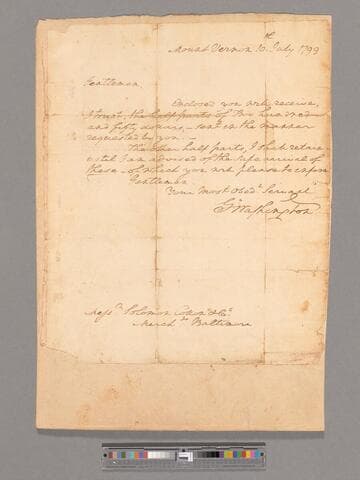 Mount Vernon 10th July 1799
Gentlemen
Enclosed you will receive,
I trust, the half parts of Two hundred
and fifty dollars, – sent in the manner
requested by you. –
The other half parts, I shall retain
until I am advised of the safe arrival of
these – of which you will please to
Gentlemen
Your Most Obedt Servant
Go Washington
Messrs Solomon & Co.
Merchts Baltimore